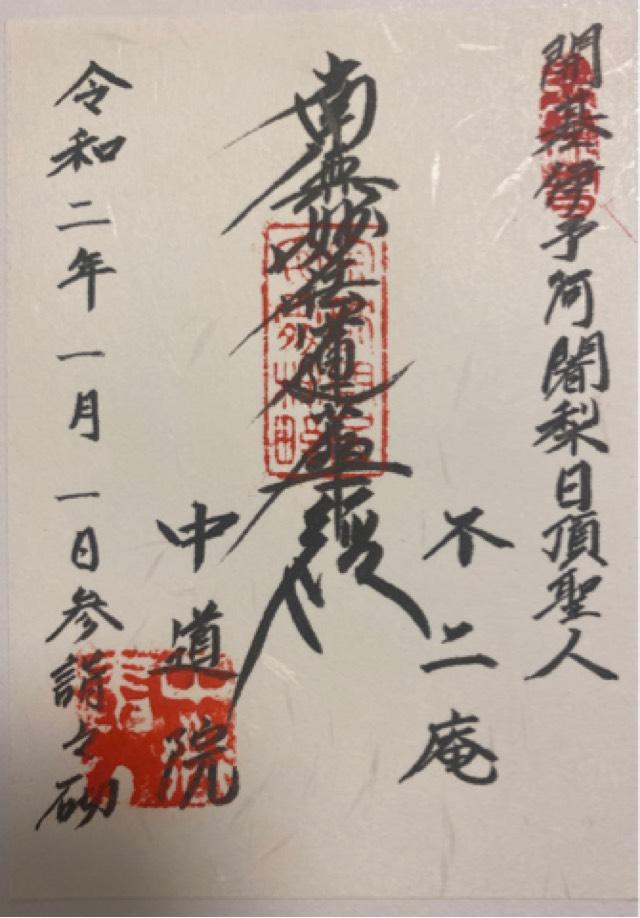 開基伊予阿闍梨日頂聖人
不二庵
南無妙法蓮華経
中道院
令和二年一月一日参詣之砌